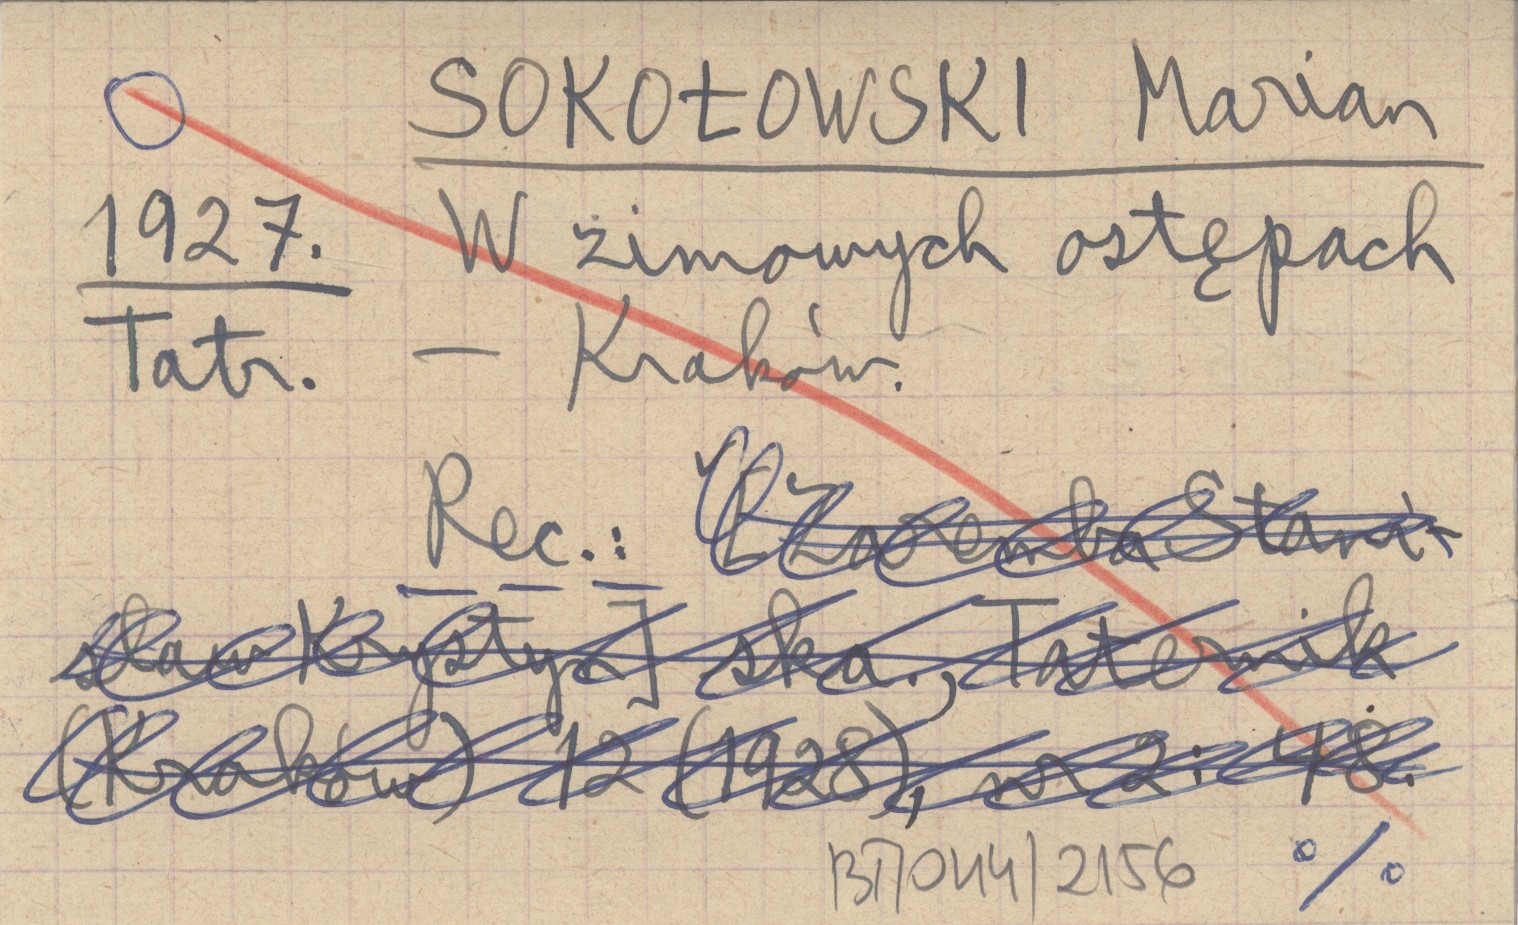 SOKOŁOWSKI Marian
1927. W zimowych ostępach
Tatr. — Kraków.
Rec.: [Zaremba Stani-
sław Krystyn] ska., Taternik
(Kraków) 12 (1928), nr 2: 48.
BT/044/2156 %